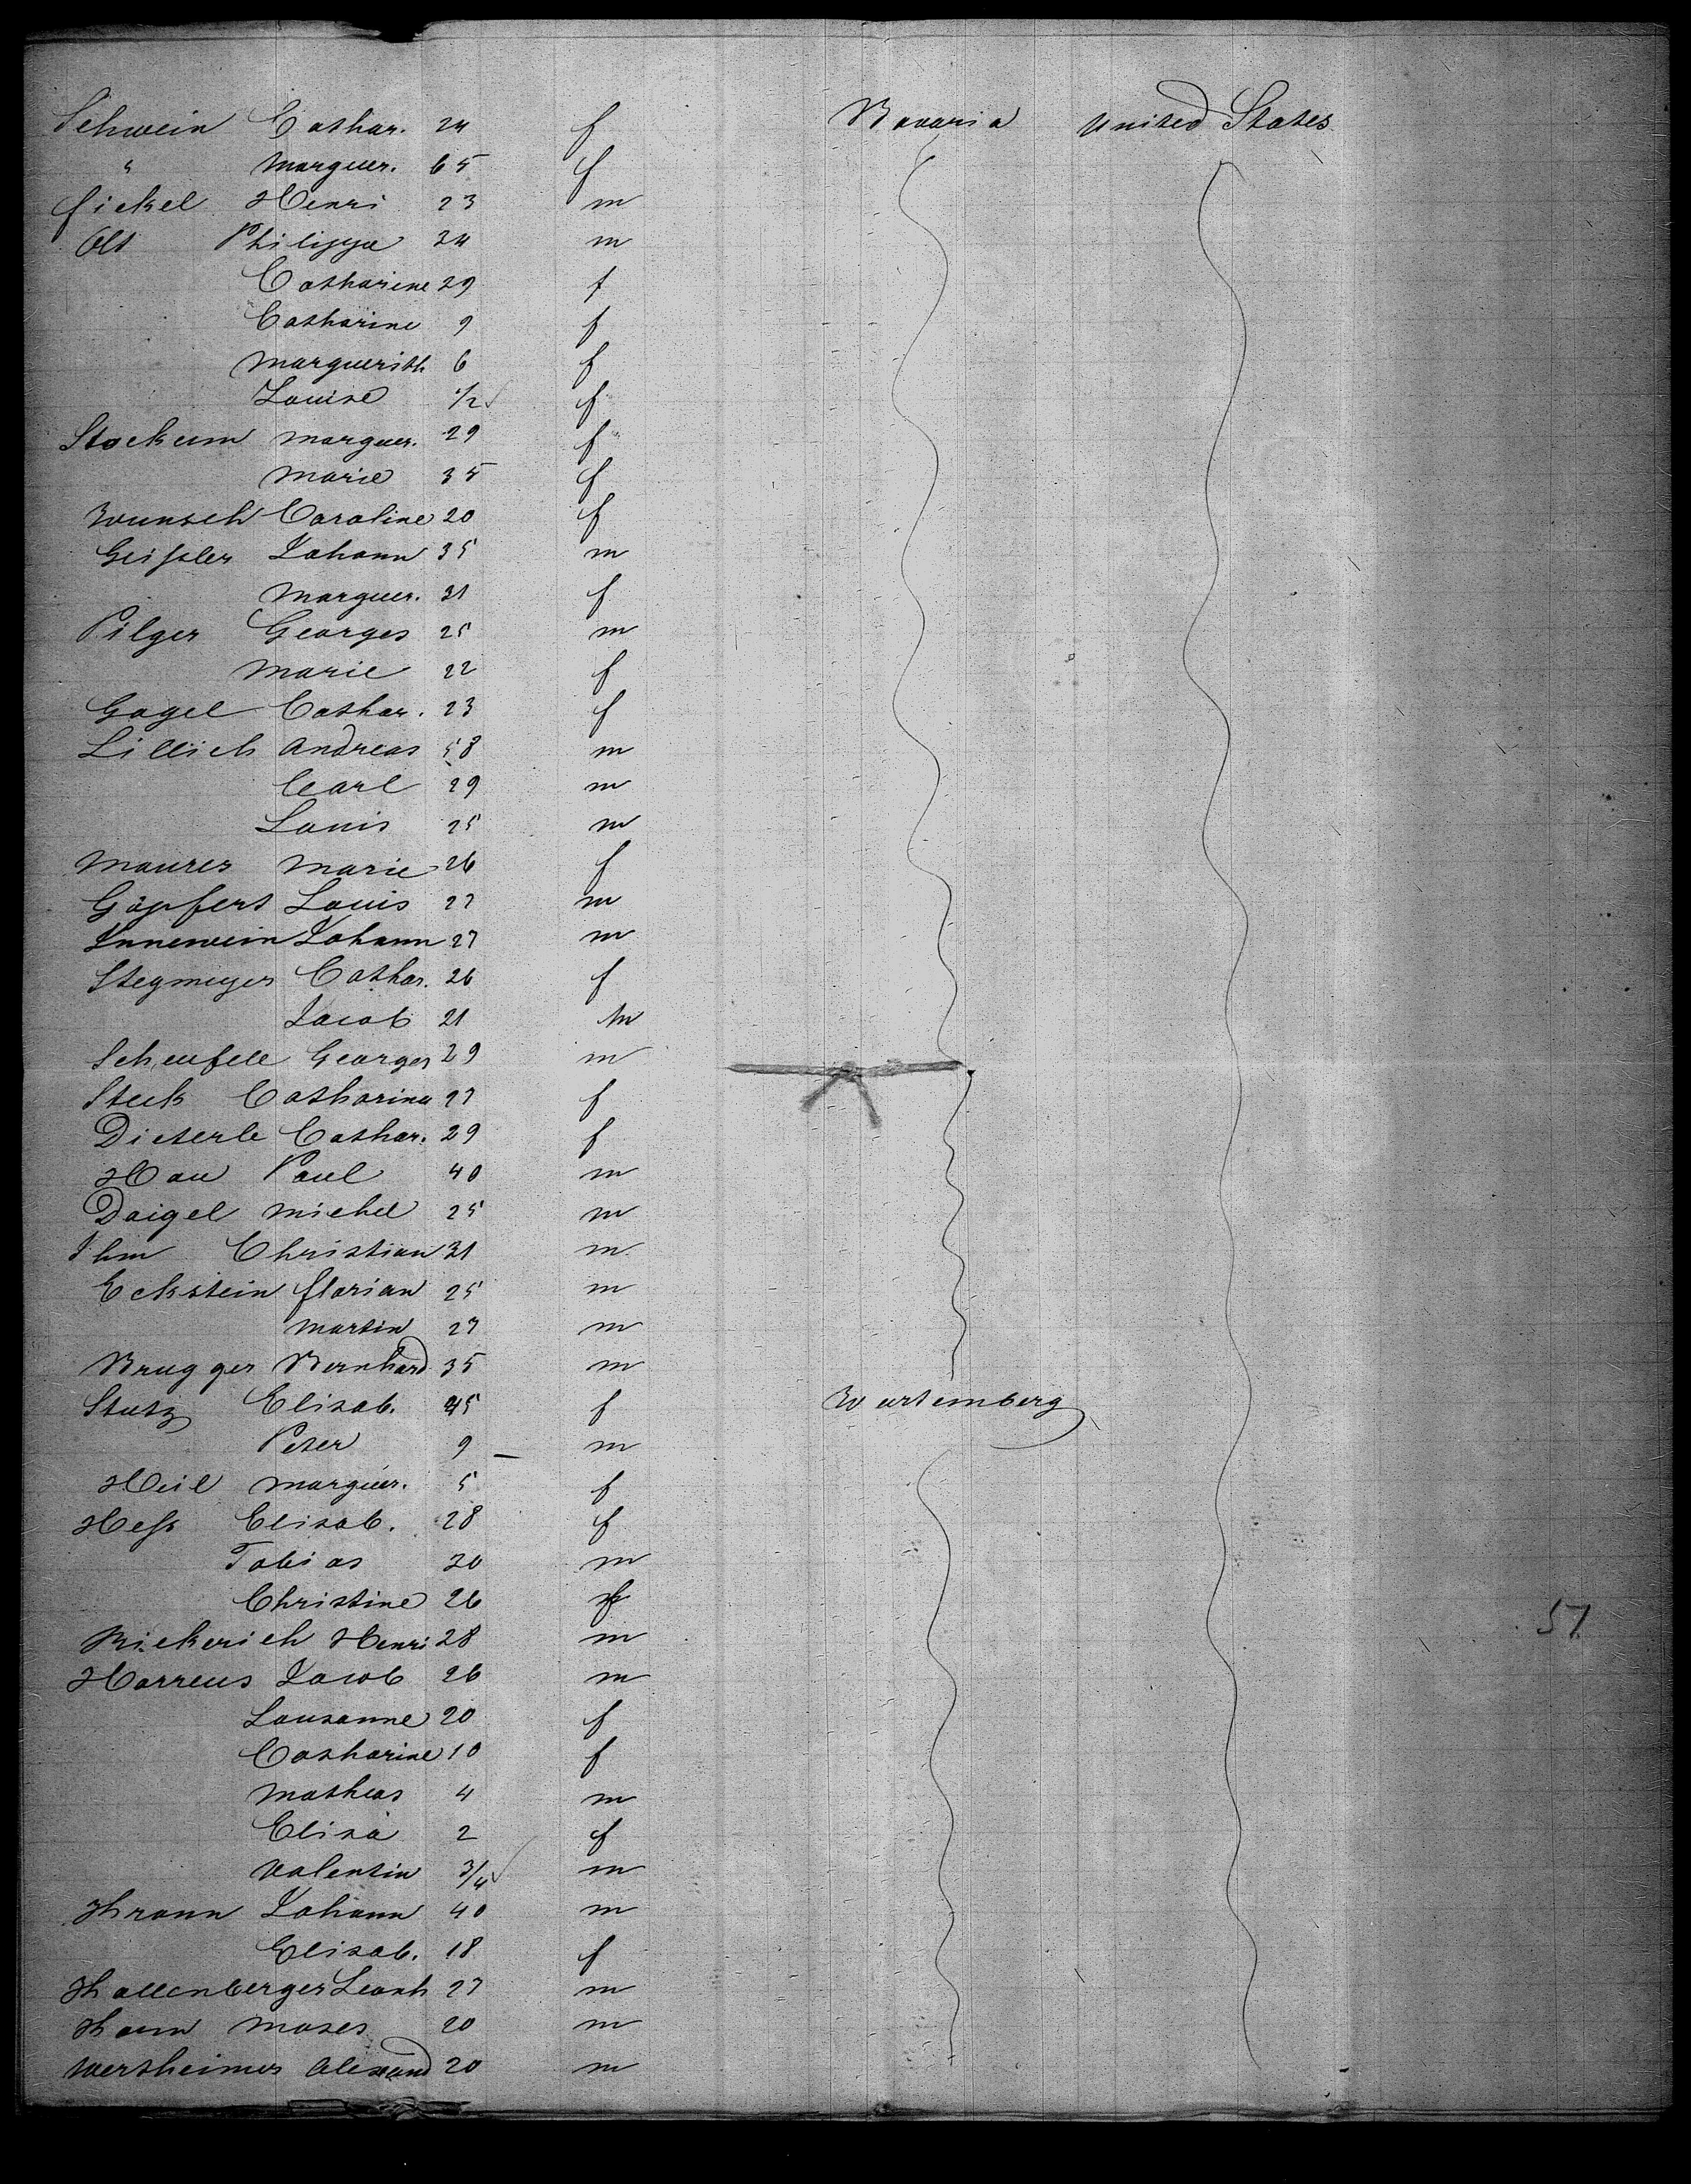 Schwein Cathar. 24 f Bavaria United States
" Marguer. 65 f
Fickel Henri 23 m
Olt Philippe 34 m
Catharine 29 f
Catharine 9 f
Marguerith 6 f
Louise 1/2 f
Stockum Marguer. 29 f
Marie 35 f
Wunsch Caroline 20 f
Geissler Johann 35 m
Marguer. 31 f
Pilger Georges 25 m
Marie 22 f
Gagel Cathar. 23 f
Lillich Andreas 58 m
Carl 29 m
Louis 25 m
Maurer Marie 26 f
Göpfert Louis 27 m
Innewein Johann 27 m
Stegmeyer Cathar. 26 f
Jacob 21 m
Scheufele Georges 29 m
Steck Catharina 27 f
Dieterle Cathar. 29 f
Hau Paul 40 m
Daigel Michel 25 m
Ihm Christian 31 m
Eckstein Florian 25 m
Martin 27 m
Brugger Bernhard 35 m
Stutz Elisab. 45 f Wurtemberg
Peter 9 — m
Heil Marguer. 5 f
Hess Elisab. 28 f
Tobias 30 m
Christine 26 f
Rickerich Henri 28 m 57
Harreus Jacob 26 m
Lousanne 20 f
Catharine 10 f
Mathias 4 m
Elisa 2 f
Valentin 3/4 m
Johann 40 m
Elisab. 18 f
Leonh 27 m
Moses 20 m
Wertheimer Alexand 20 m